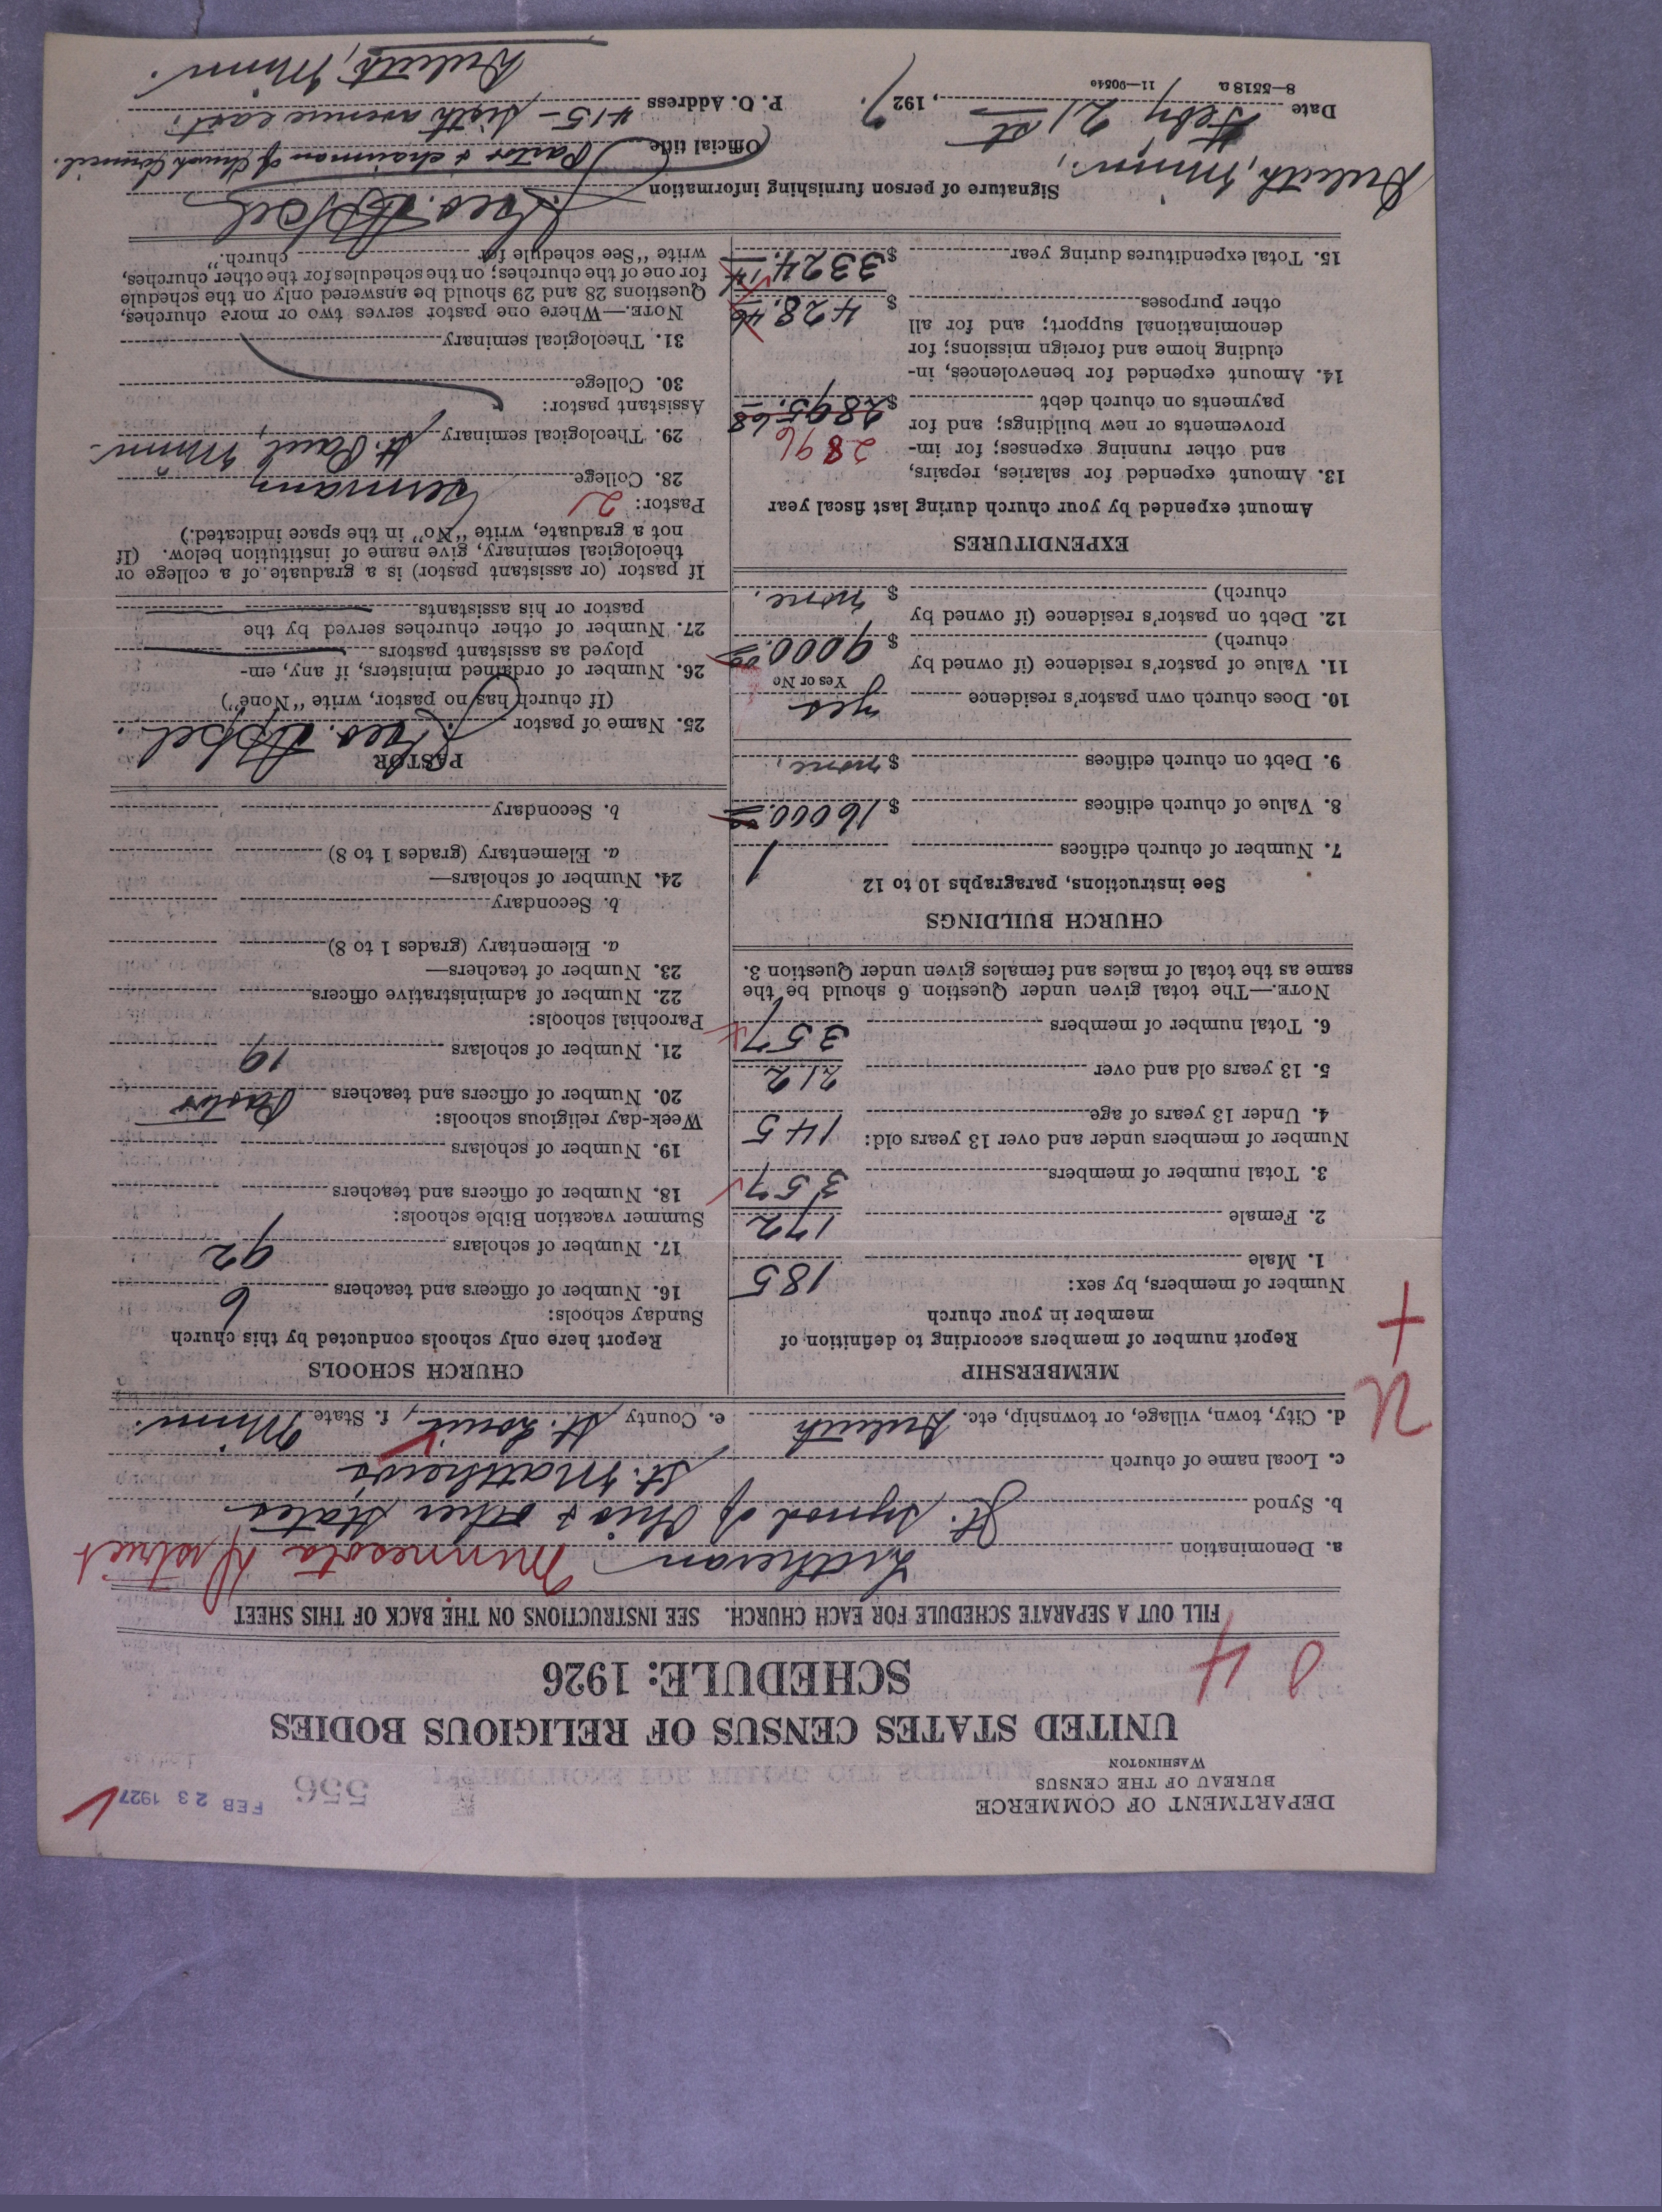 DEPARTMENT OF COMMERCE
BUREAU OF THE CENSUS
WASHINGTON
556
FEB 23 1927
UNITED STATES CENSUS OF RELIGIOUS BODIES
SCHEDULE: 1926
FILL OUT A SEPARATE SCHEDULE FOR EACH CHURCH. SEE INSTRUCTIONS ON THE BACK OF THIS SHEET
a. Denomination Lutheran Minnesota District
b. Synod Jt. Synod of Ohio & other States
c. Local name of church St. Matthew's
d. City, town, village, or township, etc. Duluth e. County St. Louis, f. State Minn.
MEMBERSHIP
Report number of members according to definition of
member in your church
Number of members, by sex:
1. Male 185
2. Female 172
3. Total number of members 357
Number of members under and over 13 years old:
4. Under 13 years of age 145
5. 13 years old and over 212
6. Total number of members 357
NOTE.—The total given under Question 6 should be the
same as the total of males and females given under Question 3.
CHURCH BUILDINGS
See instructions, paragraphs 10 to 12
7. Number of church edifices 1
8. Value of church edifices $ 16000.00
9. Debt on church edifices $ none.
10. Does church own pastor's residence yes
Yes or No
11. Value of pastor's residence (if owned by
church) $ 9000.00
12. Debt on pastor's residence (if owned by
church) $ none.
EXPENDITURES
Amount expended by your church during last fiscal year
13. Amount expended for salaries, repairs,
and other running expenses; for im-
provements or new buildings; and for
payments on church debt $ 2895.68
2896
14. Amount expended for benevolences, in-
cluding home and foreign missions; for
denominational support; and for all
other purposes $ 428.46
15. Total expenditures during year $ 3324.14
CHURCH SCHOOLS
Report here only schools conducted by this church
Sunday schools:
16. Number of officers and teachers 6
17. Number of scholars 92
Summer vacation Bible schools:
18. Number of officers and teachers
19. Number of scholars
Week-day religious schools:
20. Number of officers and teachers Pastor
21. Number of scholars 19
Parochial schools:
22. Number of administrative officers
23. Number of teachers—
a. Elementary (grades 1 to 8)
b. Secondary
24. Number of scholars—
a. Elementary (grades 1 to 8)
b. Secondary
PASTOR
25. Name of pastor Geo. Appel.
(If church has no pastor, write "None")
26. Number of ordained ministers, if any, em-
ployed as assistant pastors
27. Number of other churches served by the
pastor or his assistants
If pastor (or assistant pastor) is a graduate of a college or
theological seminary, give name of institution below. (If
not a graduate, write "No" in the space indicated.)
Pastor: 2
28. College Germany
29. Theological seminary St. Paul, Minn.
Assistant pastor:
30. College
31. Theological seminary
NOTE.—Where one pastor serves two or more churches,
Questions 28 and 29 should be answered only on the schedule
for one of the churches; on the schedules for the other churches,
write "See schedule for church."
Signature of person furnishing information Geo. Appel
Official title Pastor & chairman of Church Council.
Duluth, Minn.,
Date Feby 21st, 1927.
P. O. Address 415 - Sixth avenue east.
Duluth, Minn.
8—5518 a 11—90540